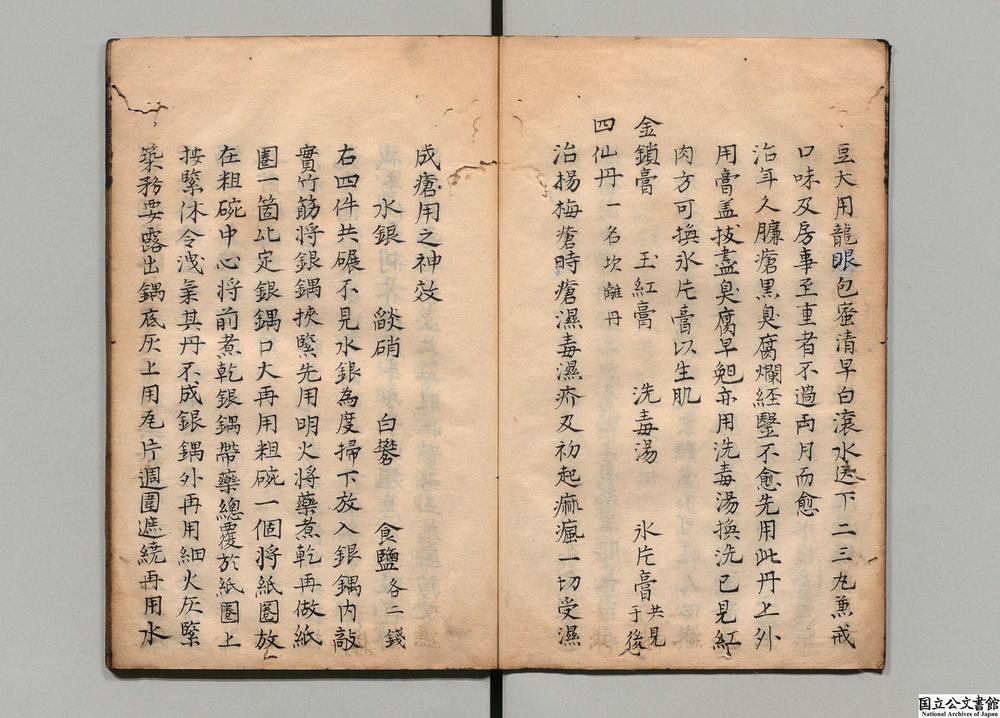 豆大用龍眼包蚉清早白滾水送下二三九兼戒
口味及房事至重者不過兩月而愈
治年久臁瘡黑臭腐爛經醫不愈先用此丹上外
用膏盖拔盡臭腐早晚亦用洗毒湯換洗已見紅
肉方可換氷片膏以生肌
金鎖膏 玉紅膏 洗毒湯 氷片膏共見于後
四仙丹一名坎離丹
治揚梅瘡時瘡濕毒濕疥及初起痲瘋一切受濕
成瘡用之神效
水銀 燄硝 白礬 食鹽各二錢
右四件共碾不見水銀為度掃下放入銀鍋內敲
實竹筋將銀鍋挾緊先用明火將藥煮乾再做紙
圈一箇比定銀鍋口大再用粗碗一個將紙圈放
在粗碗中心將前煮乾銀鍋帶藥總覆於紙圈上
按緊休令洩氣其丹不成銀鍋外再用細火灰緊
築務要露出鍋底灰上用瓦片週圍遮繞再用水
国立公文書館
National Archives of Japan